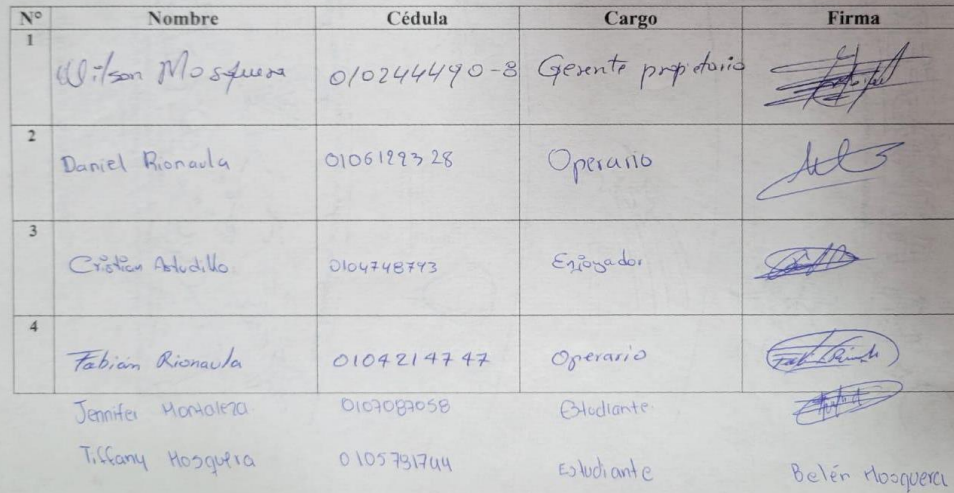 N° Nombre Cédula Cargo Firma
1 Wilson Mosquera 010244490-8 Gerente propietario
2 Daniel Rionaula 0106129328 Operario
3 Cristian Astudillo 0104748743 Enjoyador
4 Fabián Rionaula 0104214747 Operario
Jennifer Montaleza 0107087058 Estudiante
Tiffany Mosquera 0105791744 Estudiante Belén Mosquera